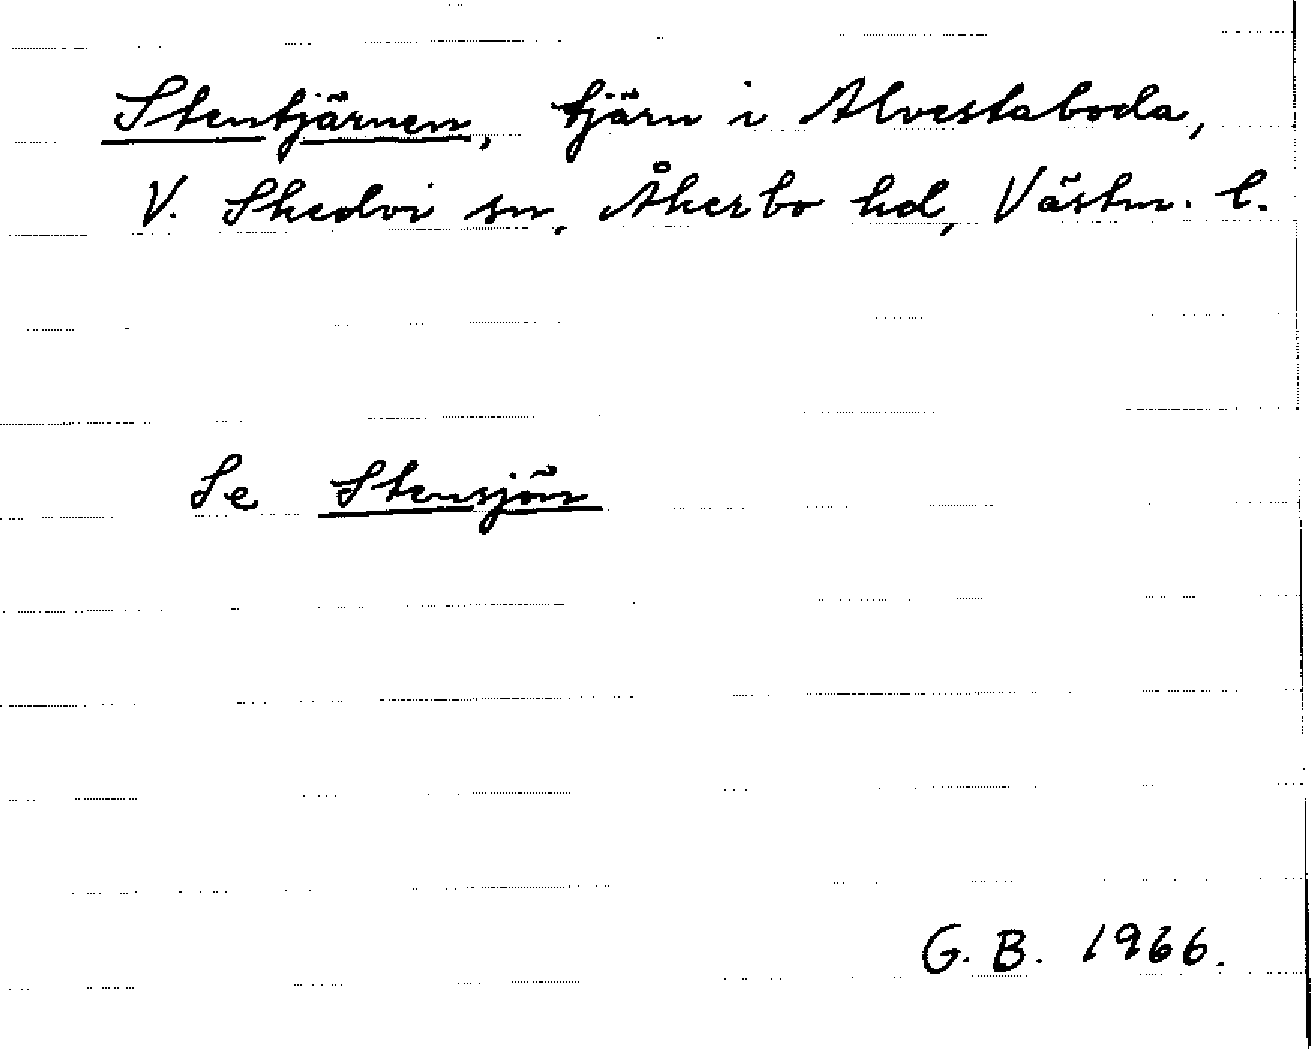 Stentjärnen, tjärn i Alvestaboda,
V. Skedvi sn, Åkerbo hd, Västm. l.
Se Stensjön
G. B. 1966.